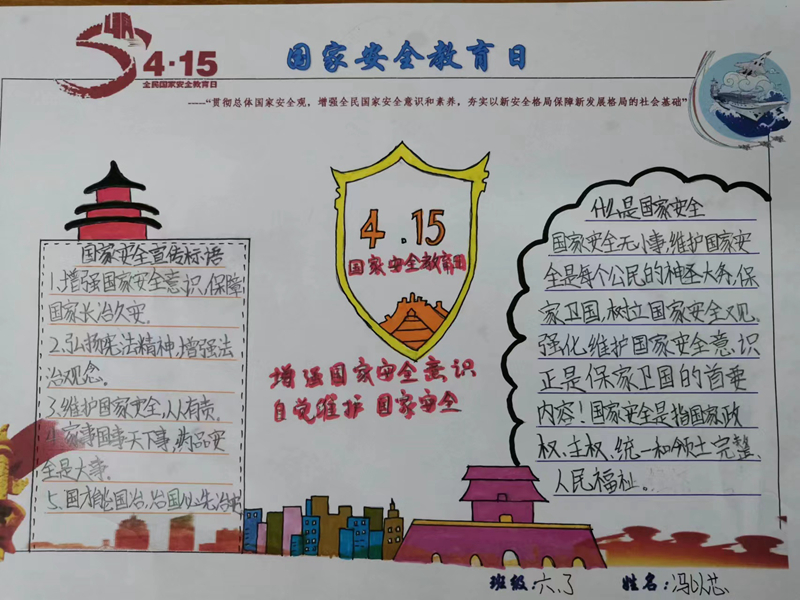 4·15
全民国家安全教育日
国家安全教育日
----“贯彻总体国家安全观，增强全民国家安全意识和素养，夯实以新安全格局保障新发展格局的社会基础”
国家安全宣传标语
1.增强国家安全意识,保障
国家长治久安.
2.弘扬宪法精神,增强法
治观念.
3.维护国家安全,人人有责.
4.家事国事天下事,药品安
全是大事.
5.国才能国治,治国必先治
4.15
国家安全教育日
增强国家安全意识
自觉维护 国家安全
什么是国家安全
国家安全无小事,维护国家安
全是每个公民的神圣大务,保
家卫国,树立国家安全观,
强化维护国家安全意识
正是保家卫国的首要
内容!国家安全是指国家政
权、主权、统一和领土完整、
人民福祉。
班级:六.3 姓名:冯以芯